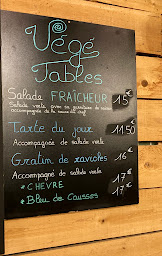 Végé
Tables
Salade FRAÎCHEUR 15€
Salade verte avec sa garniture de saison
accompagnée de la sauce du chef
Tarte du jour 11.50
Accompagnées de salade verte
Gratin de ravioles 16€
Accompagné de salade verte 17€
* CHEVRE
* Bleu de Causses 17€